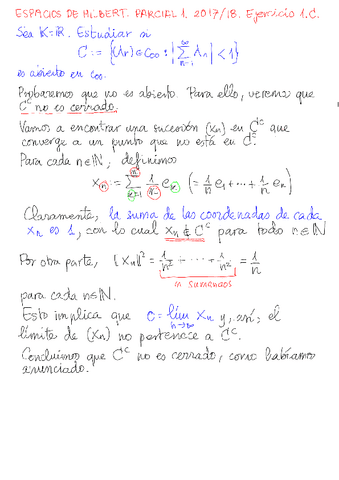 ESPACIOS DE HILBERT. PARCIAL 1. 2017/18. Ejercicio 1.C.
Sea K=ℝ. Estudiar si
C := {(λn) ∈ c₀₀ : |∑_{n=1}^{∞} λn| < 1}
es abierto en c₀₀.
Probaremos que no es abierto. Para ello, veremos que
C^c no es cerrado.
Vamos a encontrar una sucesión (xn) en C^c que
converge a un punto que no está en C^c.
Para cada n∈ℕ, definimos
xn := ∑_{k=1}^{n} 1/n ek (= 1/n e₁ + ··· + 1/n en)
Claramente, la suma de las coordenadas de cada
xn es 1, con lo cual xn ∈ C^c para todo n∈ℕ
Por otra parte, ‖xn‖² = 1/n² + ··· + 1/n² = 1/n
n sumandos
para cada n∈ℕ.
Esto implica que 0 = lím_{n→∞} xn y, así, el
límite de (xn) no pertenece a C^c.
Concluimos que C^c no es cerrado, como habíamos
anunciado.